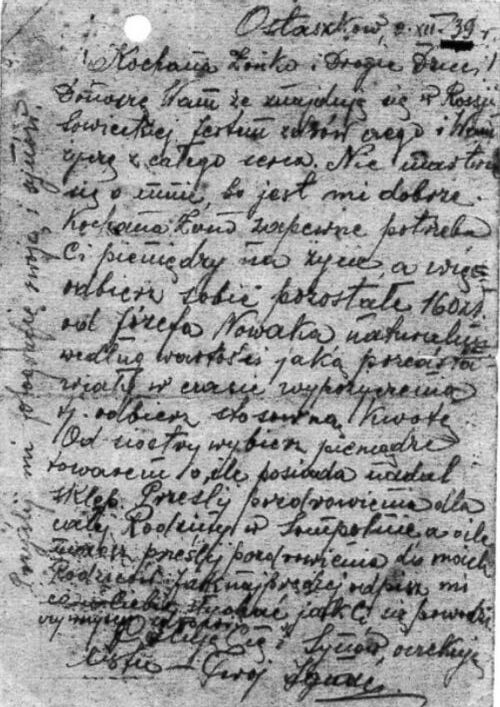 Ostaszków, 2. XII. 39 r.
Kochana Żonko i Drogie Dzieci!
Donoszę Wam że znajduję się w Rosji
Sowieckiej Jestem zdrów czego i Wam
życzę z całego serca. Nie martw
się o mnie, bo jest mi dobrze.
Kochana Żono zapewne potrzeba
Ci pieniędzy na życie, a więc
odbierz sobie pozostałe 160 zł.
od Józefa Nowaka naturalnie
według wartości jaką przedsta-
wiały w czasie wypożyczenia
tj. odbierz stosowną kwotę
Od siostry wybierz pieniądze
towarem o ile posiada nadal
sklep. Prześlij pozdrowienia dla
całej Rodziny w Sompolnie a o ile
możesz prześlij pozdrowienia do moich
Rodziców. Jak najprędzej odpisz mi
co u Ciebie słychać jak Ci się powodzi
Całuję Cię i Synów, oczekuję
listu – Twój
Prześlij mi fotografię moją i synów.